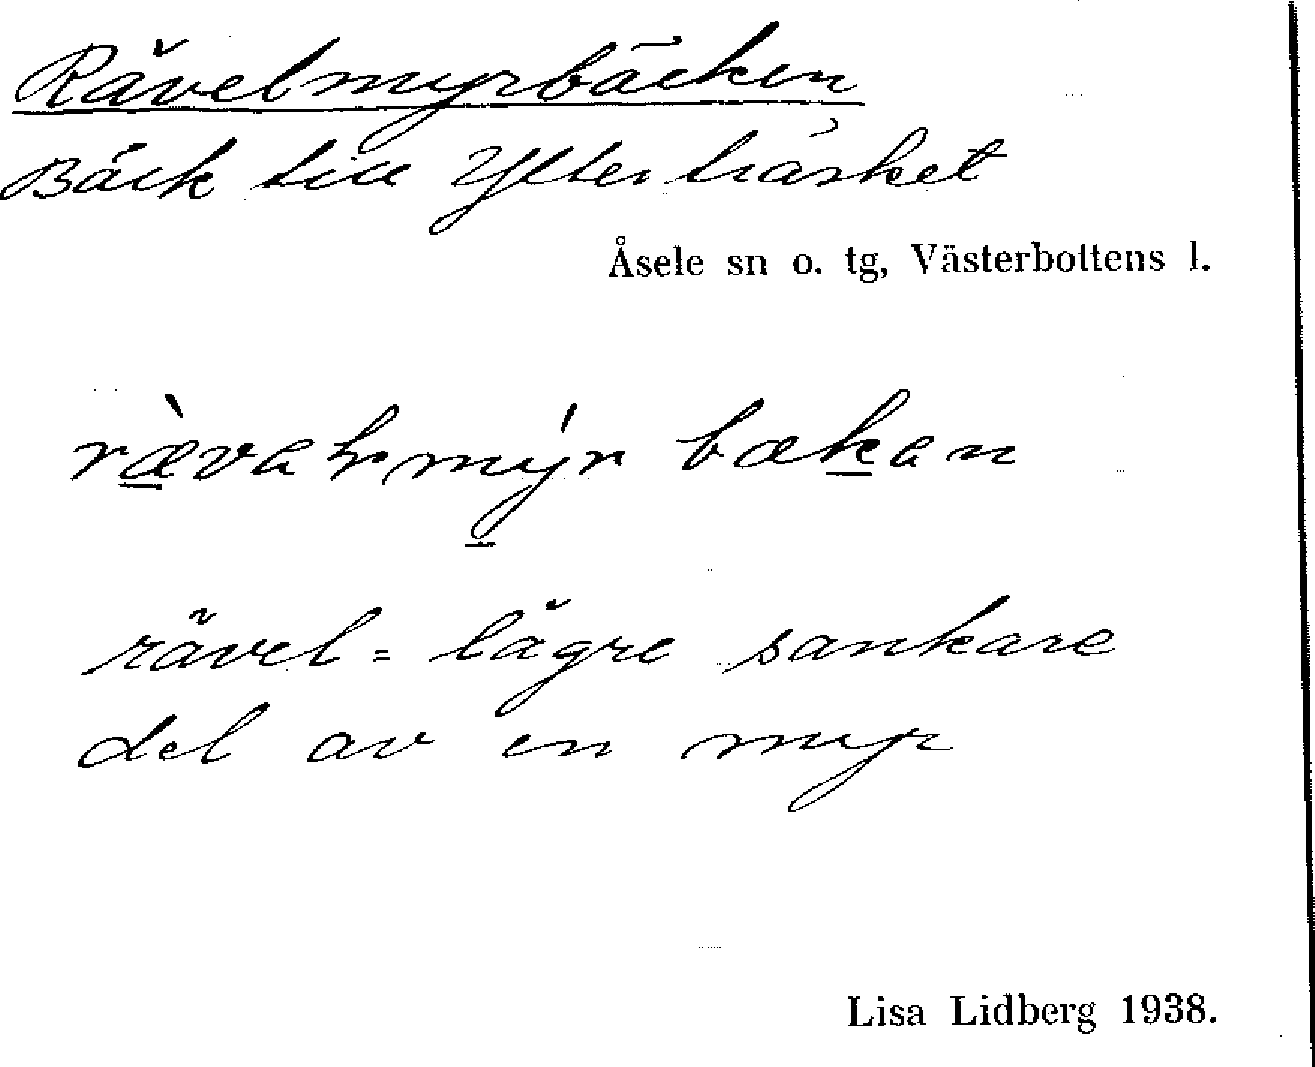 Rävelmyrbäcken
Bäck till Ytterträsket
Åsele sn o. tg, Västerbottens l.
bækan
rävel = lägre sankare
del av en myr
Lisa Lidberg 1938.